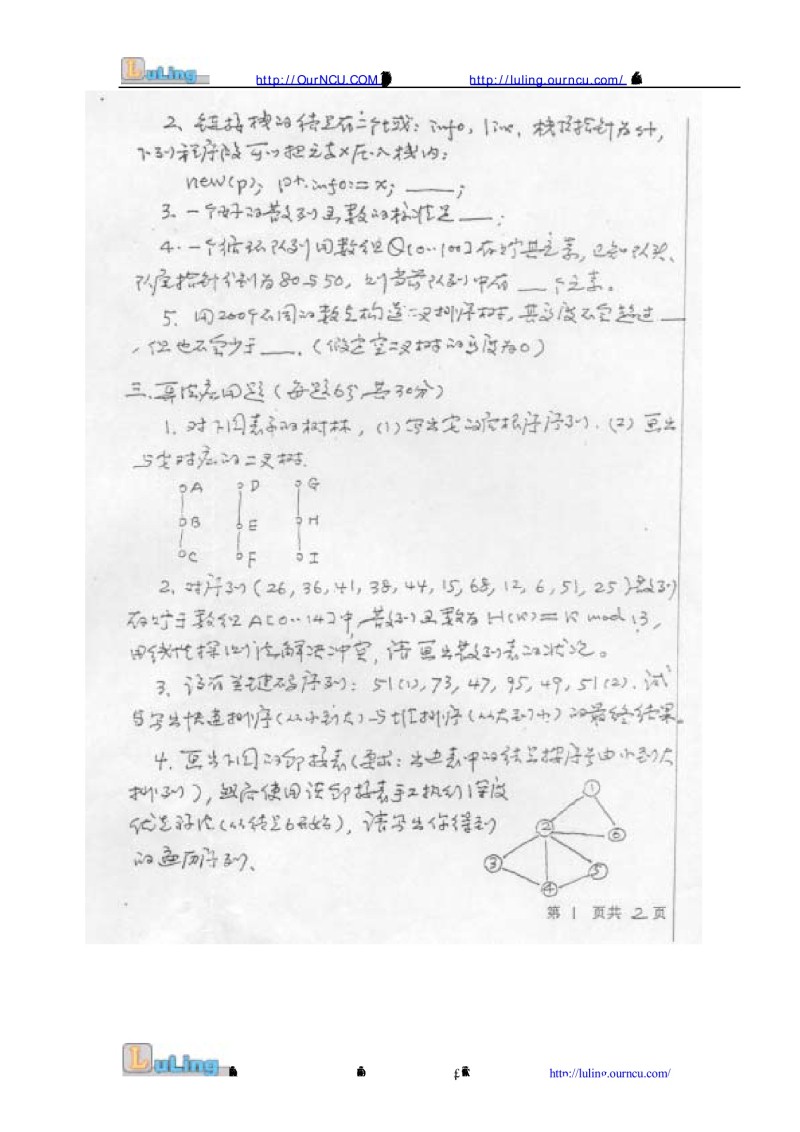 LuLing http://OurNCU.COM http://luling.ourncu.com/
2、链接栈的结点有二个域：info，link，栈顶指针为st，
下列程序段可以把元素x压入栈内：
new(p); p↑.info:=x; ____;
3. 一个好的散列函数的标准是____；
4. 一个循环队列用数组Q[0..100]存贮其元素，已知队头、
队尾指针分别为80与50，则当前队列中有____个元素。
5. 用200个不同的数去构造二叉排序树，其高度不会超过____
，但也不会少于____.（假定空二叉树的高度为0）
三、算法应用题（每题6分，共30分）
1. 对下图表示的树林，(1)写出它的后根序序列. (2) 画出
与它对应的二叉树.
A D G
B E H
C F I
2. 对序列(26, 36, 41, 38, 44, 15, 68, 12, 6, 51, 25)散列
存贮于数组A[0..14]中，散列函数为H(K)=K mod 13,
用线性探测法解决冲突，请画出散列表的状况。
3、设有关键码序列：51(1), 73, 47, 95, 49, 51(2). 试
写出快速排序(从小到大)与堆排序(从大到小)的最终结果。
4. 画出下图的邻接表(要求：出边表中的结点按序号由小到大
排列)，然后使用该邻接表手工执行深度
优先算法(从结点6开始)，请写出你得到
的遍历序列、
1
2 6
3 5
4
第 1 页共 2 页
LuLing http://luling.ourncu.com/